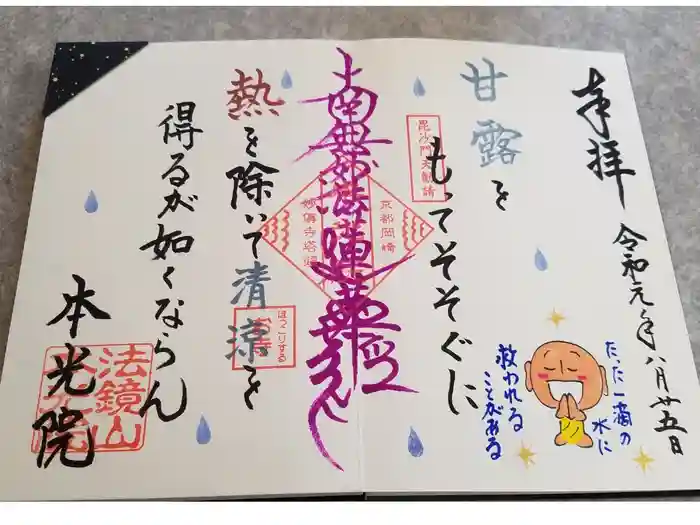 奉拝
令和元年八月廿五日
たった一滴の
水に
救われる
ことがある
甘露を
もってそそぐに
毘沙門天勧請
南無妙法蓮華経
京都岡崎
妙傳寺塔頭
熱を除いて清涼を
ほっこりする
お寺
得るが如くならん
本光院
法鏡山